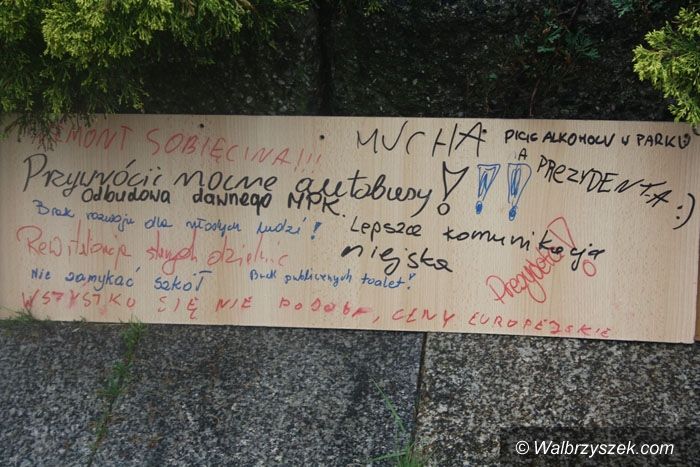 REMONT SOBIĘCINA!!!
MUCHA
PICIE ALKOHOLU W PARKU
A PREZYDENTA :)
Przywrócić nocne autobusy!!!
Odbudowa dawnego MPK.
Brak rozwoju dla młodych ludzi!
Lepsza komunikacja miejska
Rewitalizacja starych dzielnic
Nie zamykać szkół
Brak publicznych toalet!
WSZYSTKO SIĘ NIE PODOBA, CENY EUROPEJSKIE
© Walbrzyszek.com